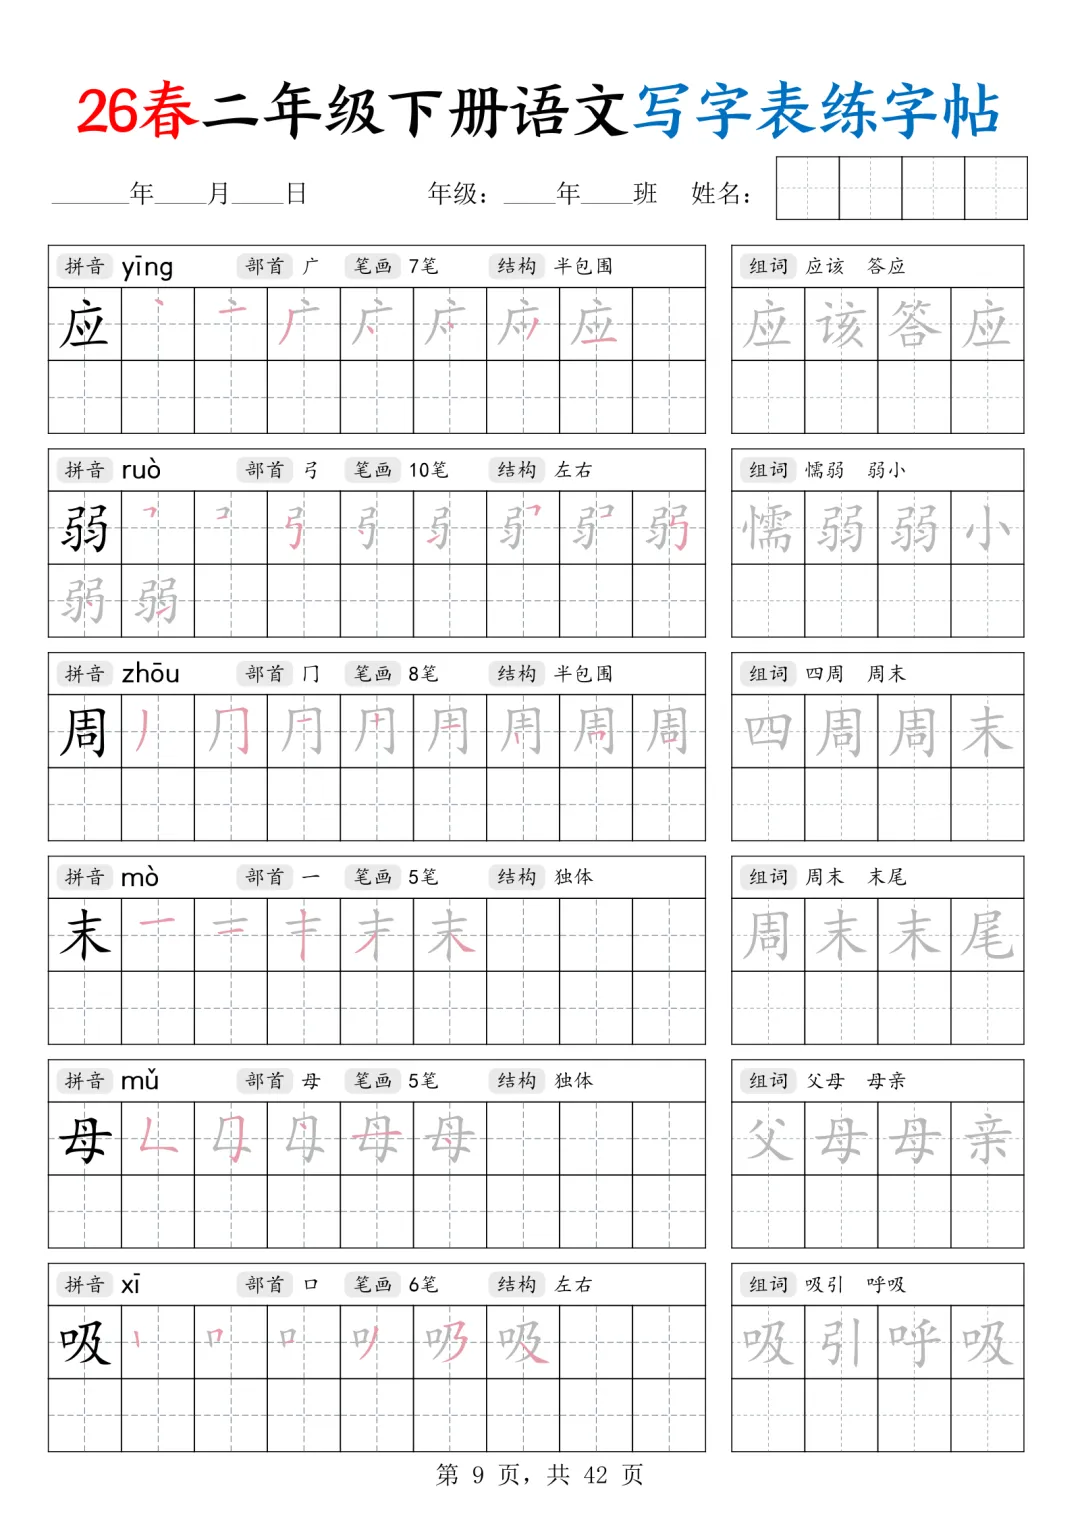 26春二年级下册语文写字表练字帖
______年____月____日 年级：____年____班 姓名：
拼音 yīng 部首 广 笔画 7笔 结构 半包围 组词 应该 答应
应 应该答应
拼音 ruò 部首 弓 笔画 10笔 结构 左右 组词 懦弱 弱小
弱 懦弱弱小
拼音 zhōu 部首 冂 笔画 8笔 结构 半包围 组词 四周 周末
周 四周周末
拼音 mò 部首 一 笔画 5笔 结构 独体 组词 周末 末尾
末 周末末尾
拼音 mǔ 部首 母 笔画 5笔 结构 独体 组词 父母 母亲
母 父母母亲
拼音 xī 部首 口 笔画 6笔 结构 左右 组词 吸引 呼吸
吸 吸引呼吸
第 9 页，共 42 页